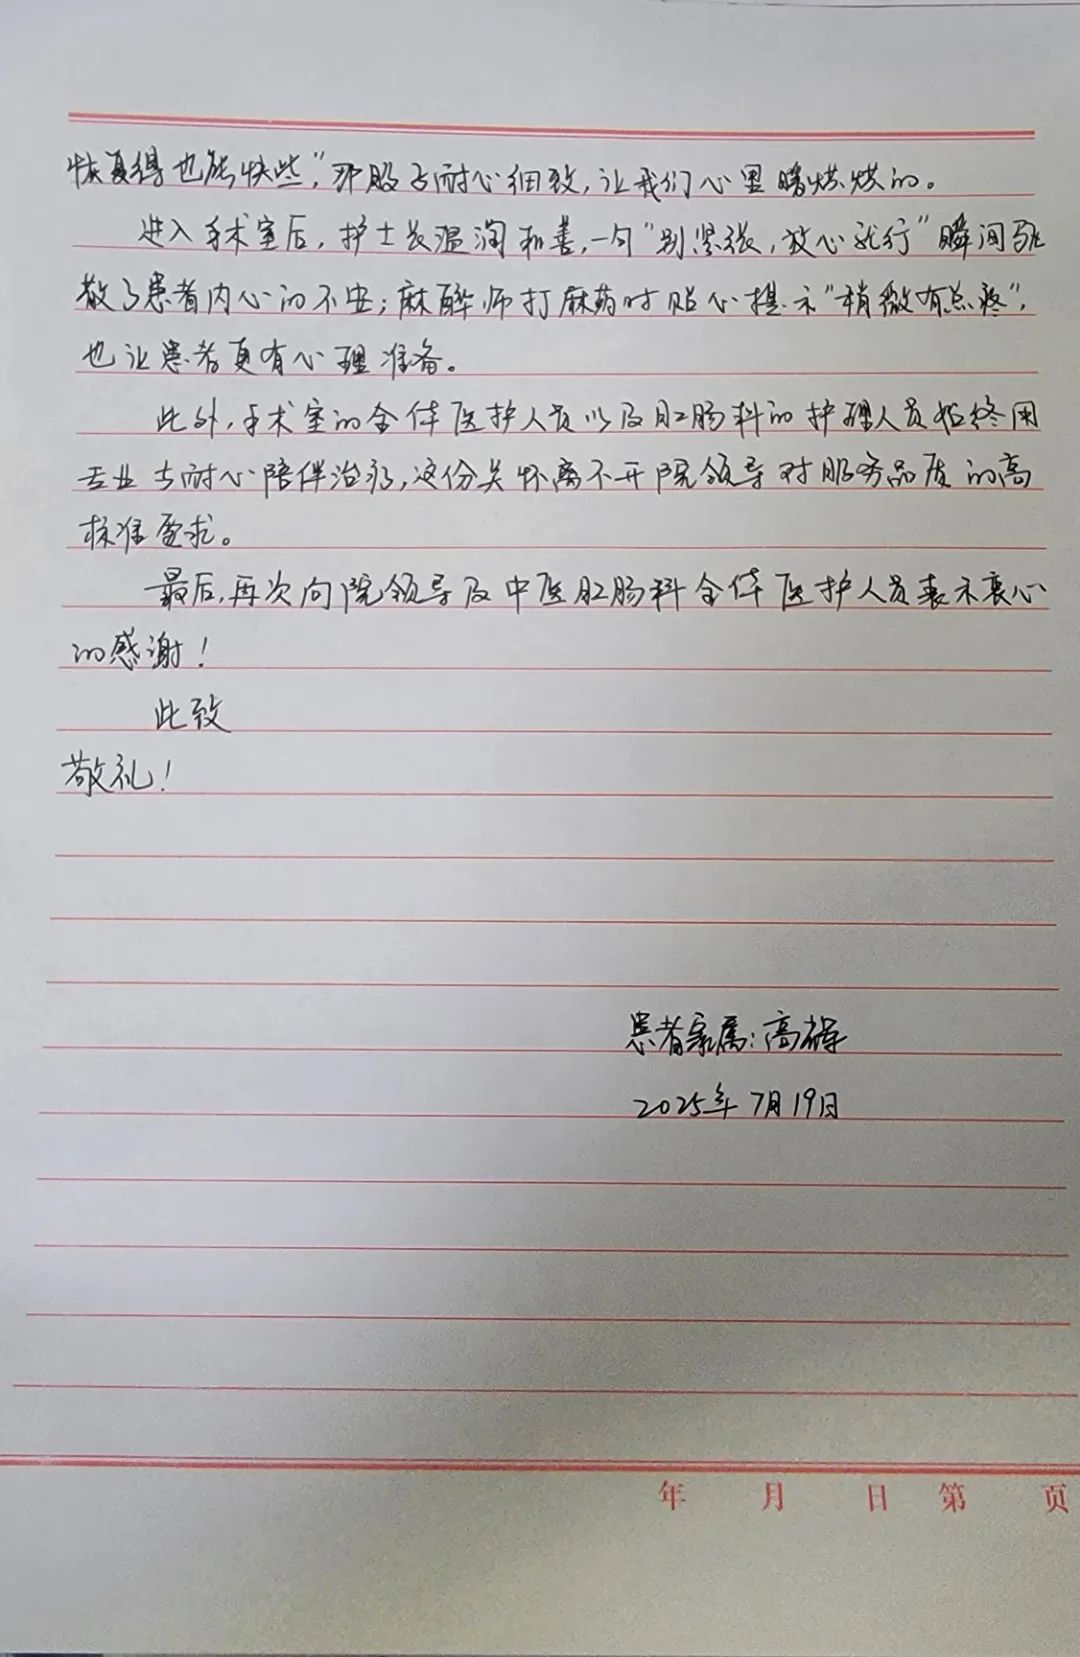 恢复得也能快些，”那股子耐心细致，让我们心里暖烘烘的。
进入手术室后，护士长温润和善，一句“别紧张，放心就行”瞬间驱
散了患者内心的不安；麻醉师打麻药时贴心提示“稍微有点疼”，
也让患者更有心理准备。
此外，手术室的全体医护人员以及肛肠科的护理人员始终用
专业与耐心陪伴治疗，这份关怀离不开院领导对服务品质的高
标准要求。
最后，再次向院领导及中医肛肠科全体医护人员表示衷心
的感谢！
此致
敬礼！
患者家属：高
2025年7月19日
年 月 日 第 页